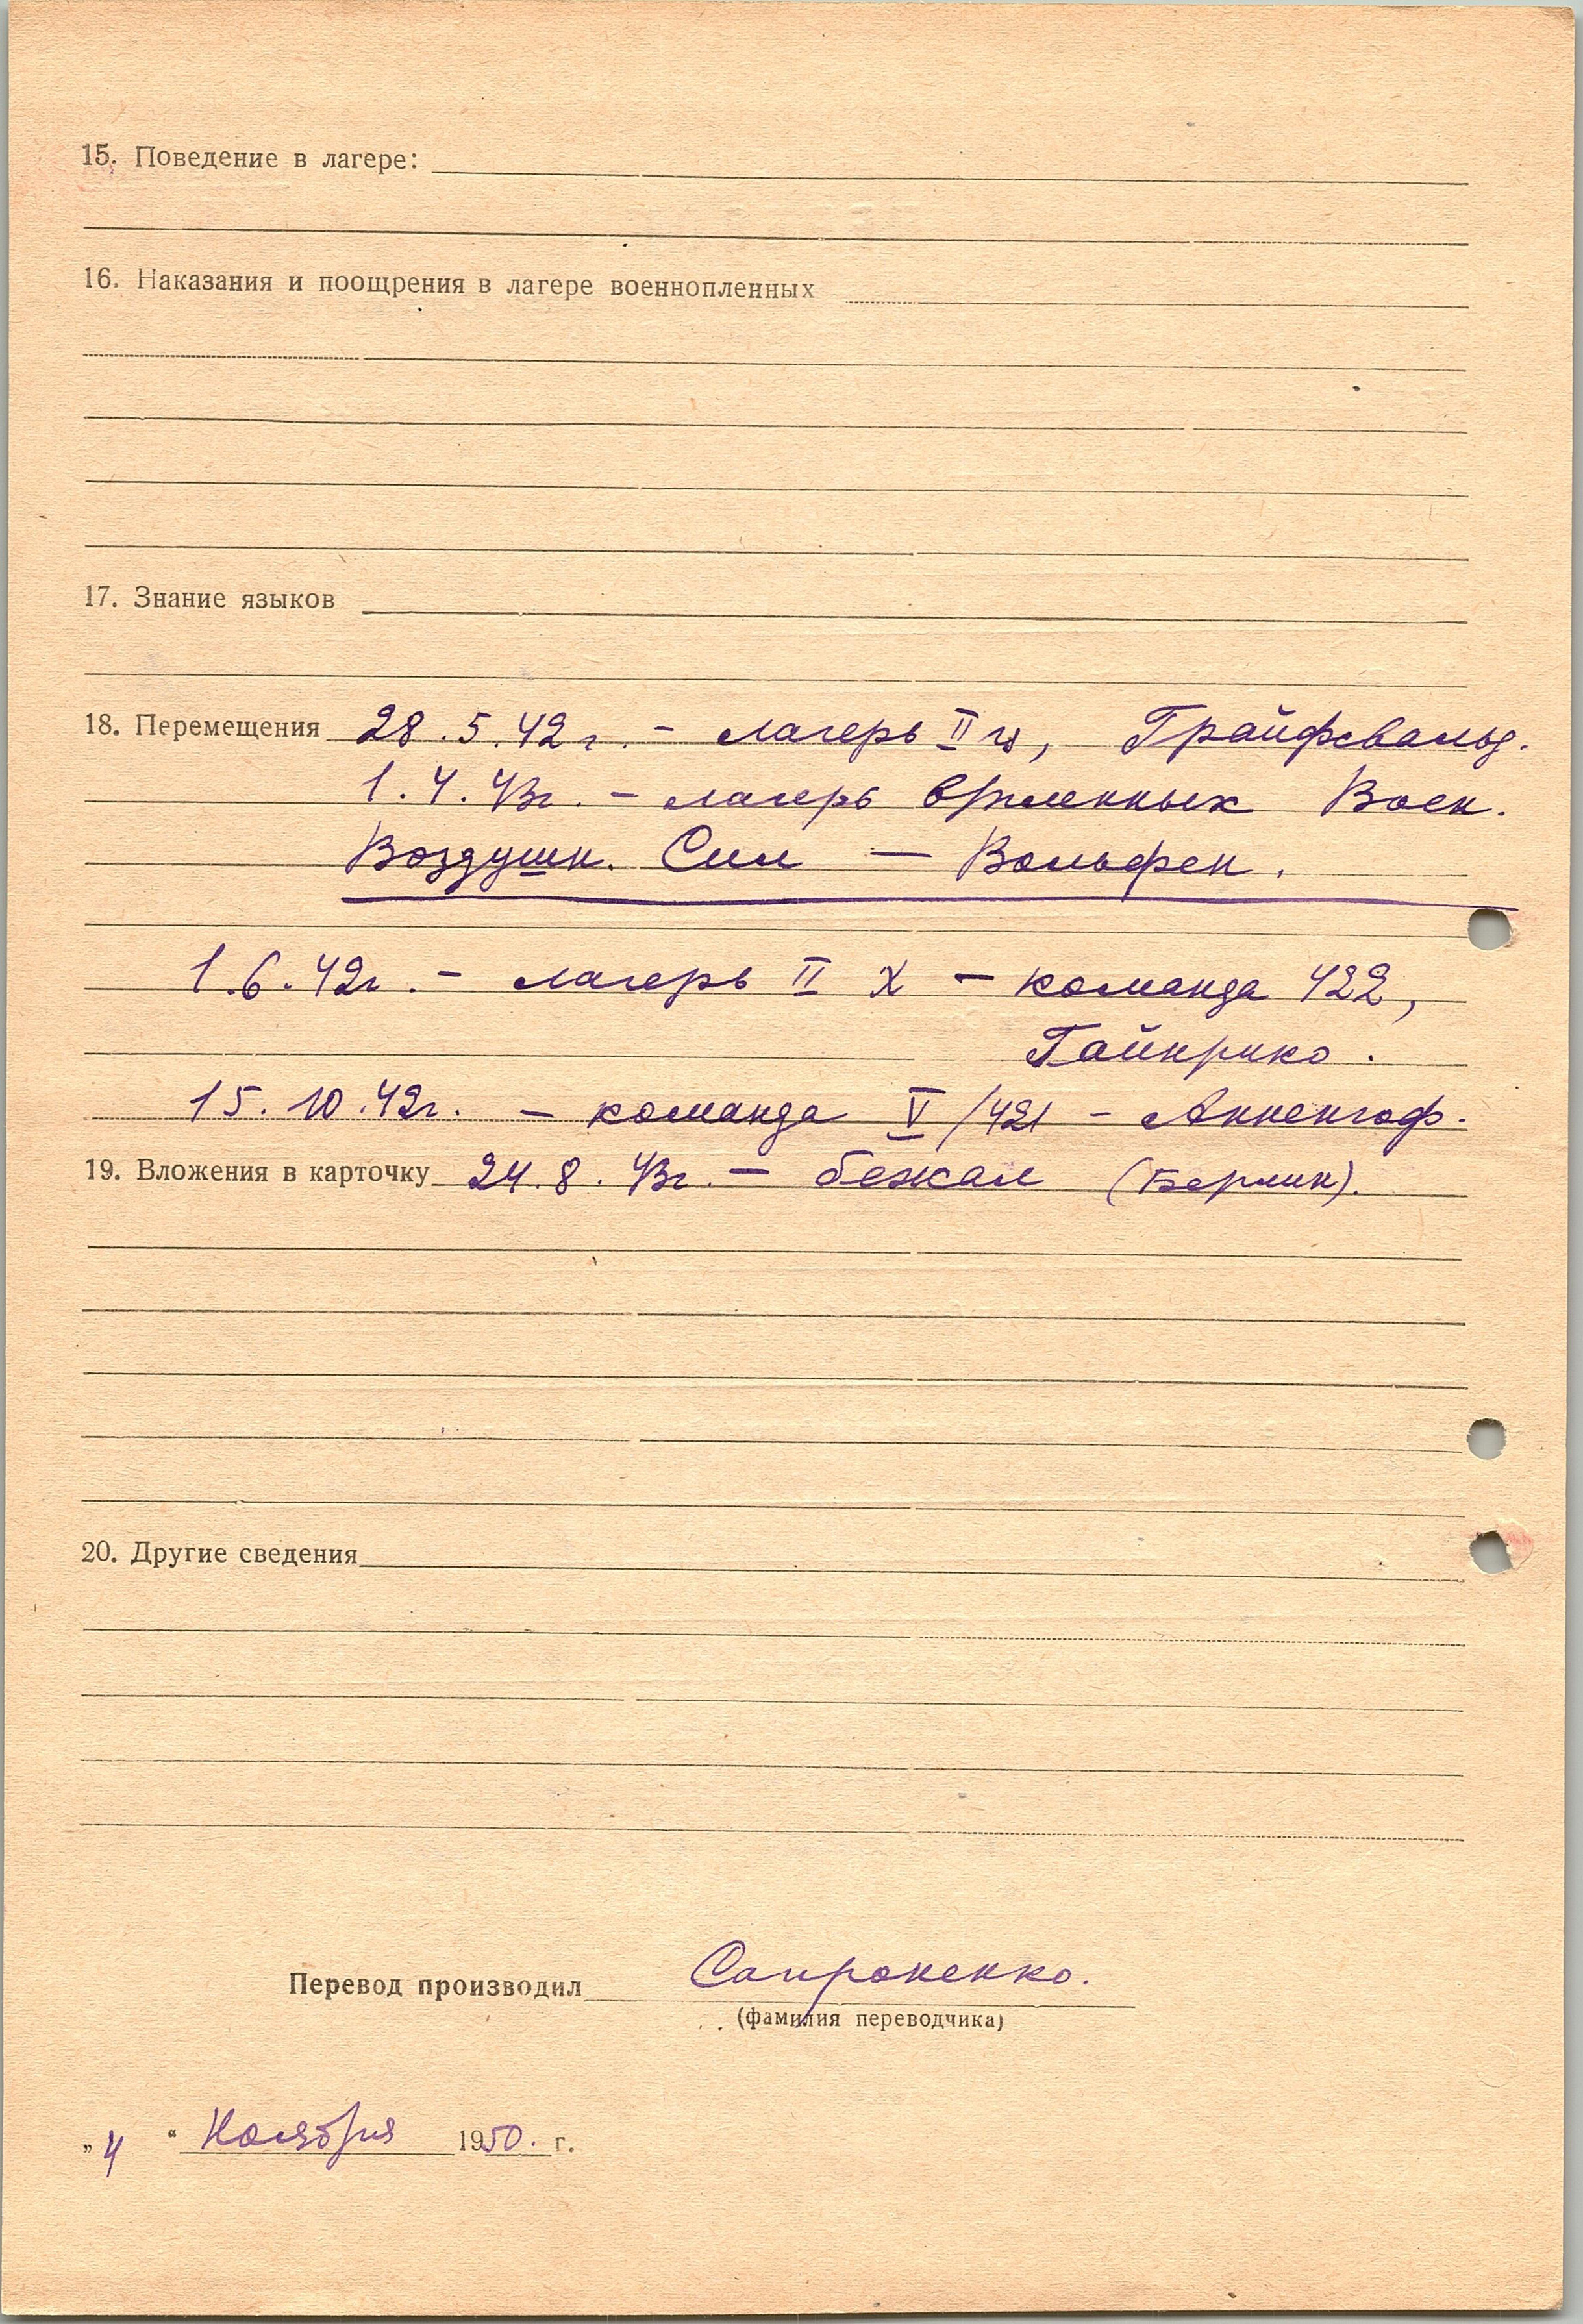 15. Поведение в лагере:
16. Наказания и поощрения в лагере военнопленных
17. Знание языков
18. Перемещения 28.5.42 г. – лагерь II ц, Грайфсвальд.
1.4.43г. – лагерь временных Воен.
Воздушн. Сил — Вольфен.
1.6.42г. – лагерь II X – команда 422,
15.10.42г. – команда V/421 – Анненгоф.
19. Вложения в карточку 24.8.43г. – бежал (Берлин).
20. Другие сведения
Перевод производил Сапроненко.
(фамилия переводчика)
„4“ Ноября 1950. г.